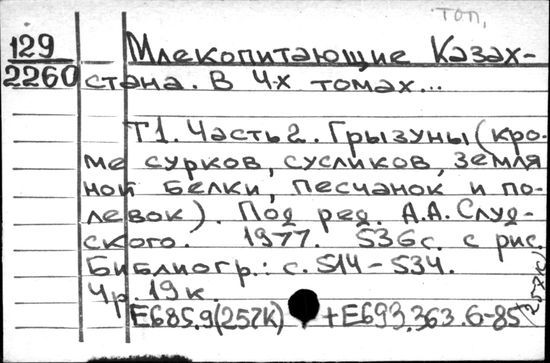 топ.
129
2260
Млекопитающие Казах-
стана. В 4-х томах...
Т1. Часть 2. Грызуны (кро-
ме сурков, сусликов, земля
ной белки, песчанок и по-
левок). Под ред. А.А. Слуд-
ского. 1977. 536с. с рис.
Библиогр.: с. 514-534.
4р. 19к.
Е685.9(257К) + Е693.363.6-85